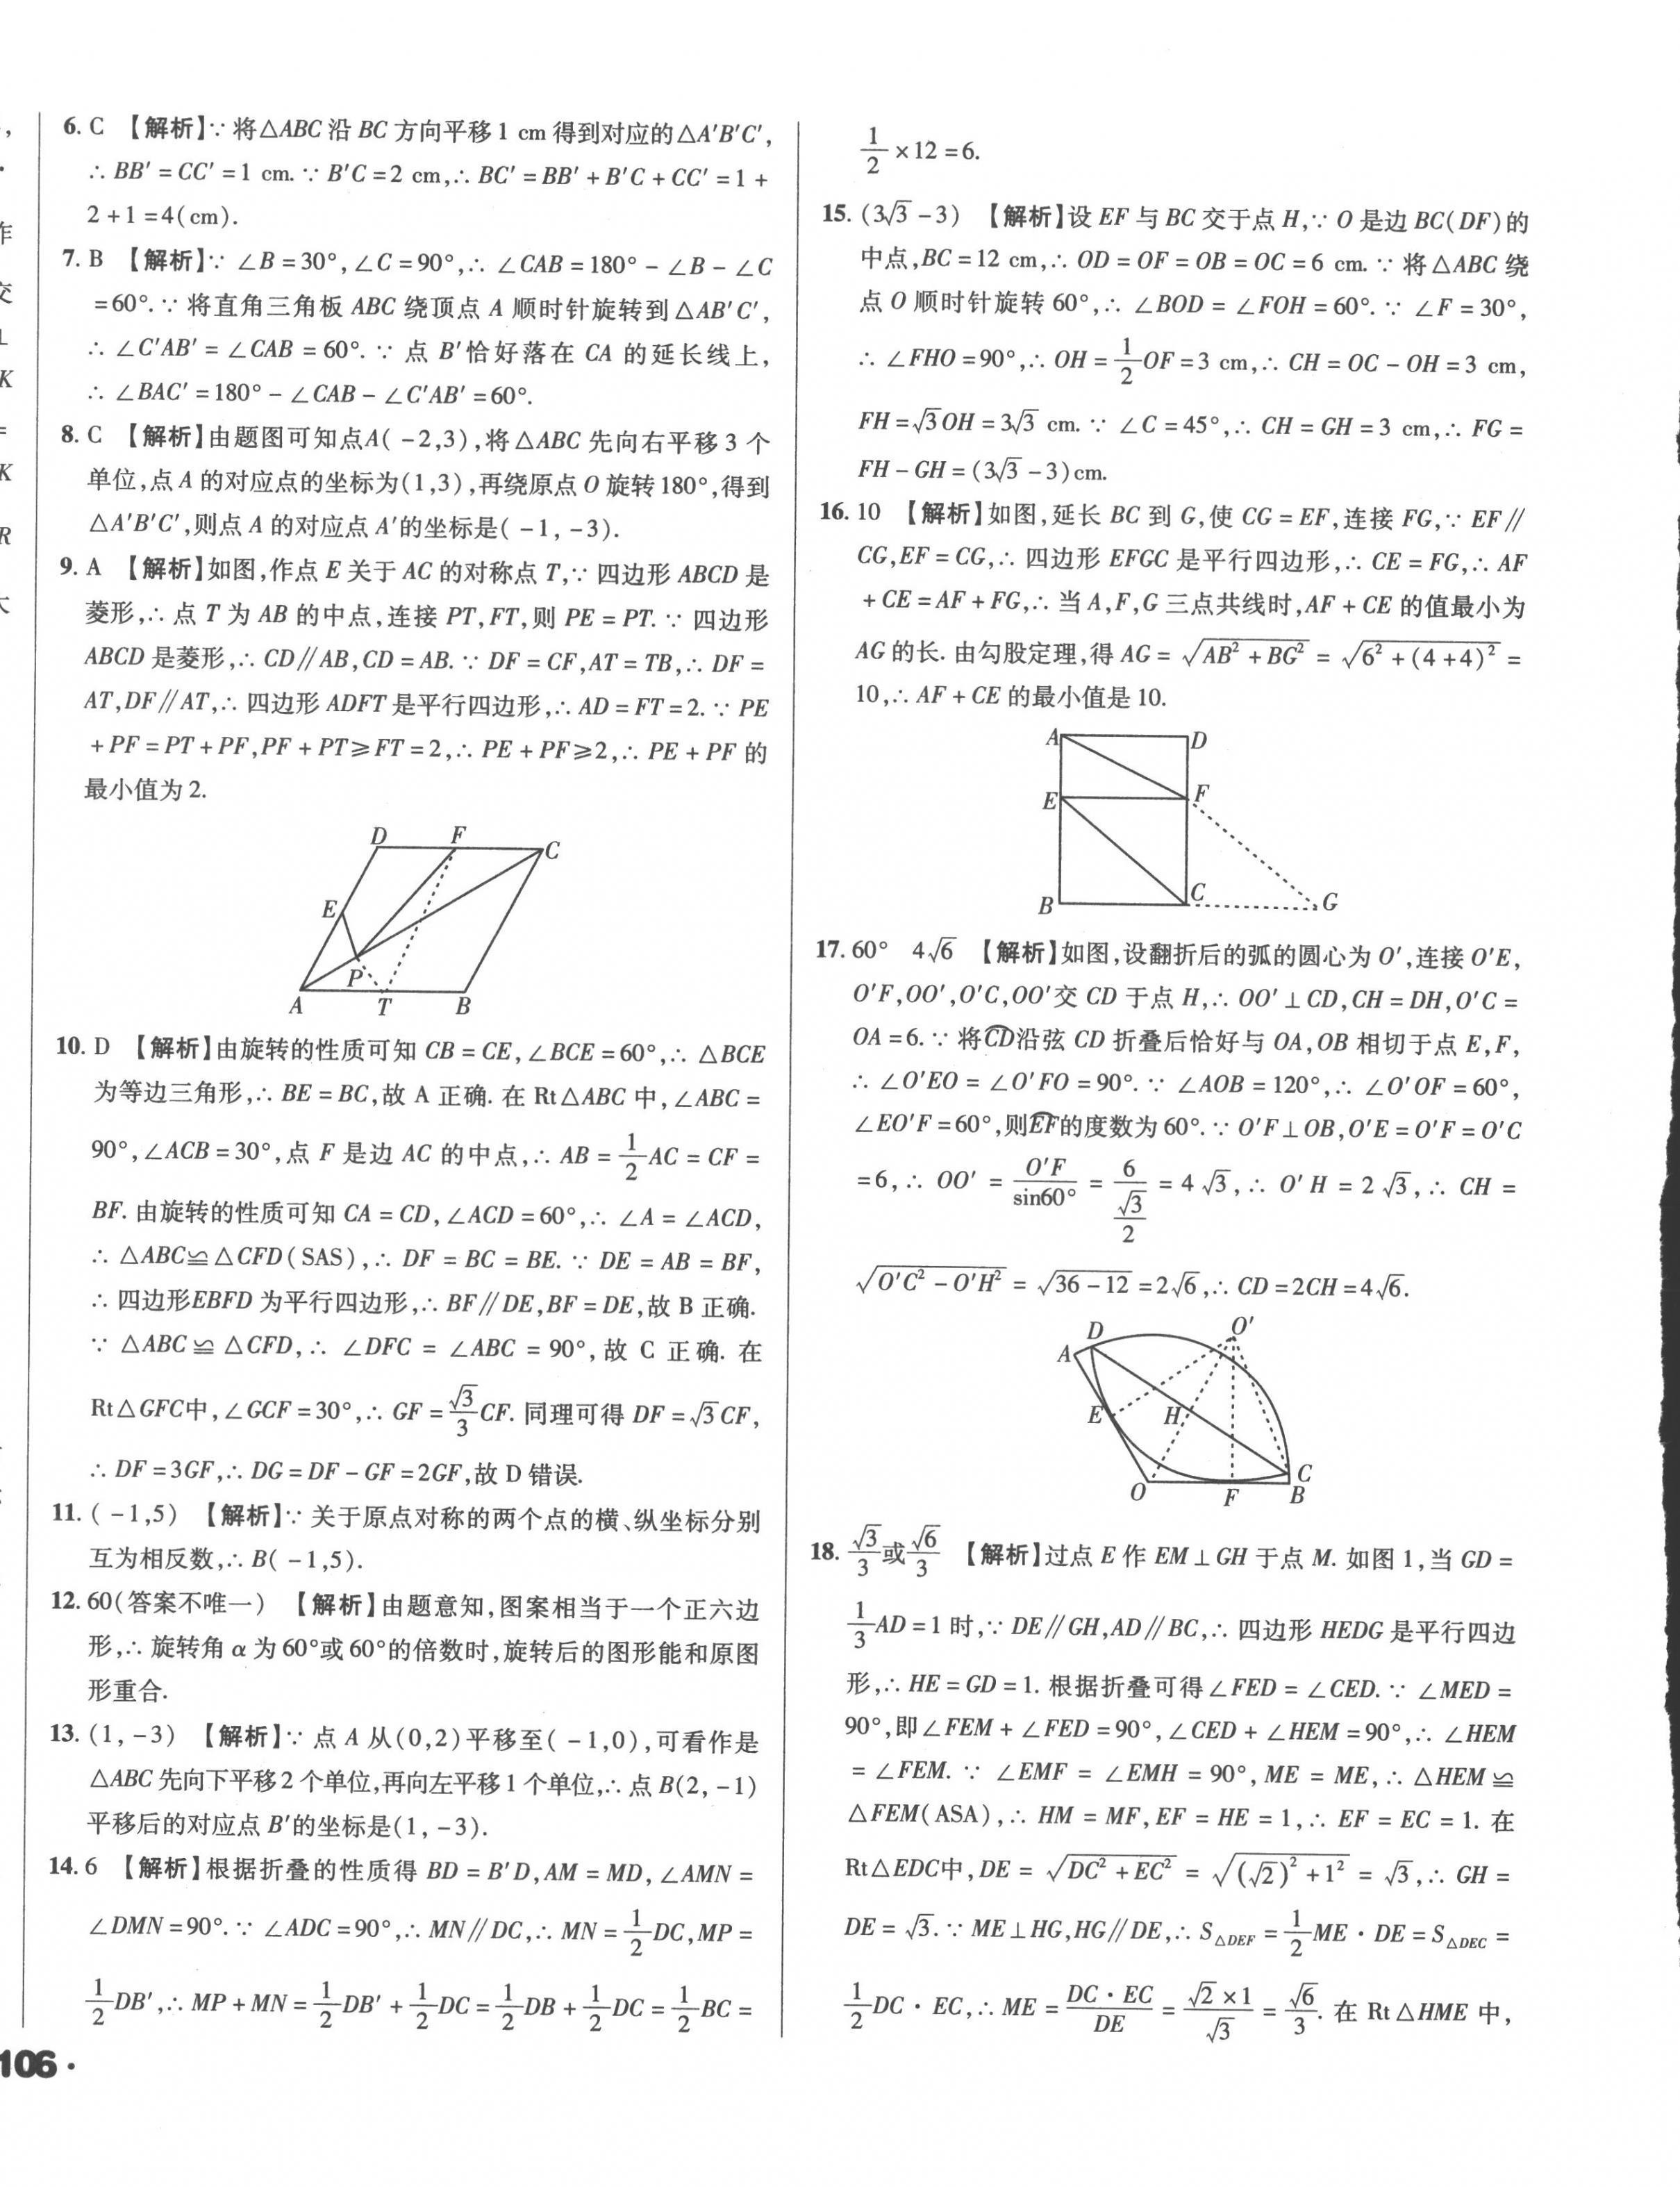 6. C 【解析】∵ 将△ABC 沿 BC 方向平移 1 cm 得到对应的△A′B′C′,
∴ BB′ = CC′ = 1 cm. ∵ B′C = 2 cm, ∴ BC′ = BB′ + B′C + CC′ = 1 +
2 + 1 = 4(cm).
7. B 【解析】∵ ∠B = 30°, ∠C = 90°, ∴ ∠CAB = 180° - ∠B - ∠C
= 60°. ∵ 将直角三角板 ABC 绕顶点 A 顺时针旋转到△AB′C′,
∴ ∠C′AB′ = ∠CAB = 60°. ∵ 点 B′恰好落在 CA 的延长线上,
∴ ∠BAC′ = 180° - ∠CAB - ∠C′AB′ = 60°.
8. C 【解析】由题图可知点A( -2,3),将△ABC 先向右平移 3 个
单位,点 A 的对应点的坐标为(1,3),再绕原点 O 旋转 180°,得到
△A′B′C′,则点 A 的对应点 A′的坐标是( -1, -3).
9. A 【解析】如图,作点 E 关于 AC 的对称点 T,∵ 四边形 ABCD 是
菱形,∴ 点 T 为 AB 的中点,连接 PT,FT,则 PE = PT. ∵ 四边形
ABCD 是菱形,∴ CD∥AB,CD = AB. ∵ DF = CF,AT = TB,∴ DF =
AT,DF∥AT,∴ 四边形 ADFT 是平行四边形,∴ AD = FT = 2. ∵ PE
+ PF = PT + PF,PF + PT ≥ FT = 2,∴ PE + PF ≥ 2,∴ PE + PF 的
最小值为 2.
D F C
E
P
A T B
10. D 【解析】由旋转的性质可知 CB = CE, ∠BCE = 60°,∴ △BCE
为等边三角形,∴ BE = BC,故 A 正确. 在 Rt△ABC 中,∠ABC =
90°,∠ACB = 30°,点 F 是边 AC 的中点,∴ AB = 1/2 AC = CF =
BF. 由旋转的性质可知 CA = CD, ∠ACD = 60°,∴ ∠A = ∠ACD,
∴ △ABC≌△CFD(SAS),∴ DF = BC = BE. ∵ DE = AB = BF,
∴ 四边形EBFD 为平行四边形,∴ BF∥DE,BF = DE,故 B 正确.
∵ △ABC≌△CFD,∴ ∠DFC = ∠ABC = 90°,故 C 正确. 在
Rt△GFC中,∠GCF = 30°,∴ GF = √3/3 CF. 同理可得 DF = √3CF,
∴ DF = 3GF,∴ DG = DF - GF = 2GF,故 D 错误.
11. ( -1,5) 【解析】∵ 关于原点对称的两个点的横、纵坐标分别
互为相反数,∴ B( -1,5).
12. 60(答案不唯一) 【解析】由题意知,图案相当于一个正六边
形,∴ 旋转角 α 为 60°或 60°的倍数时,旋转后的图形能和原图
形重合.
13. (1, -3) 【解析】∵ 点 A 从(0,2)平移至( -1,0),可看作是
△ABC 先向下平移 2 个单位,再向左平移 1 个单位,∴ 点 B(2, -1)
平移后的对应点 B′的坐标是(1, -3).
14. 6 【解析】根据折叠的性质得 BD = B′D,AM = MD,∠AMN =
∠DMN = 90°. ∵ ∠ADC = 90°,∴ MN∥DC,∴ MN = 1/2 DC,MP =
1/2 DB′,∴ MP + MN = 1/2 DB′ + 1/2 DC = 1/2 DB + 1/2 DC = 1/2 BC =
106 ·
1/2 × 12 = 6.
15. (3√3 - 3) 【解析】设 EF 与 BC 交于点 H,∵ O 是边 BC(DF)的
中点,BC = 12 cm,∴ OD = OF = OB = OC = 6 cm. ∵ 将△ABC 绕
点 O 顺时针旋转 60°,∴ ∠BOD = ∠FOH = 60°. ∵ ∠F = 30°,
∴ ∠FHO = 90°,∴ OH = 1/2 OF = 3 cm,∴ CH = OC - OH = 3 cm,
FH = √3OH = 3√3 cm. ∵ ∠C = 45°,∴ CH = GH = 3 cm,∴ FG =
FH - GH = (3√3 - 3)cm.
16. 10 【解析】如图,延长 BC 到 G,使 CG = EF,连接 FG,∵ EF∥
CG,EF = CG,∴ 四边形 EFGC 是平行四边形,∴ CE = FG,∴ AF
+ CE = AF + FG,∴ 当 A,F,G 三点共线时,AF + CE 的值最小为
AG 的长. 由勾股定理,得 AG = √(AB² + BG²) = √(6² + (4 + 4)²) =
10,∴ AF + CE 的最小值是 10.
A D
E F
B C G
17. 60° 4√6 【解析】如图,设翻折后的弧的圆心为 O′,连接 O′E,
O′F,OO′,O′C,OO′交 CD 于点 H,∴ OO′⊥CD,CH = DH,O′C =
OA = 6. ∵ 将⌒CD沿弦 CD 折叠后恰好与 OA,OB 相切于点 E,F,
∴ ∠O′EO = ∠O′FO = 90°. ∵ ∠AOB = 120°,∴ ∠O′OF = 60°,
∠EO′F = 60°,则⌒EF的度数为 60°. ∵ O′F⊥OB,O′E = O′F = O′C
= 6,∴ OO′ = O′F/sin60° = 6/(√3/2) = 4√3,∴ O′H = 2√3,∴ CH =
√(O′C² - O′H²) = √(36 - 12) = 2√6,∴ CD = 2CH = 4√6.
D O′
A
E H
C
O F B
18. √3/3 或 √6/3 【解析】过点 E 作 EM⊥GH 于点 M. 如图 1,当 GD =
1/3 AD = 1 时,∵ DE∥GH,AD∥BC,∴ 四边形 HEDG 是平行四边
形,∴ HE = GD = 1. 根据折叠可得∠FED = ∠CED. ∵ ∠MED =
90°,即∠FEM + ∠FED = 90°,∠CED + ∠HEM = 90°,∴ ∠HEM
= ∠FEM. ∵ ∠EMF = ∠EMH = 90°,ME = ME,∴ △HEM≌
△FEM(ASA),∴ HM = MF,EF = HE = 1,∴ EF = EC = 1. 在
Rt△EDC中,DE = √(DC² + EC²) = √((√2)² + 1²) = √3,∴ GH =
DE = √3. ∵ ME⊥HG,HG∥DE,∴ S△DEF = 1/2 ME · DE = S△DEC =
1/2 DC · EC,∴ ME = DC · EC/DE = √2 × 1/√3 = √6/3. 在 Rt△HME 中,